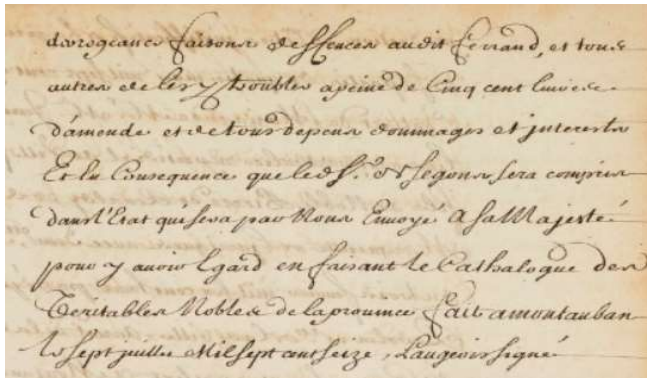 derogeance faisons deffences audit ferrand, et tous
autres de les y troubler apeine de Cinq cent livres
d'amende et detous depens dommages et jnterests
Et En Consequence que led Sr. de segons sera compris
dans l'Etat qui sera par Nous Envoyé A sa Majesté
pour y avoir Egard en faisant le Cathalogue des
Veritables Nobles de la province fait amontauban
le sept juillet Mil sept cent seize, Laugeois signé